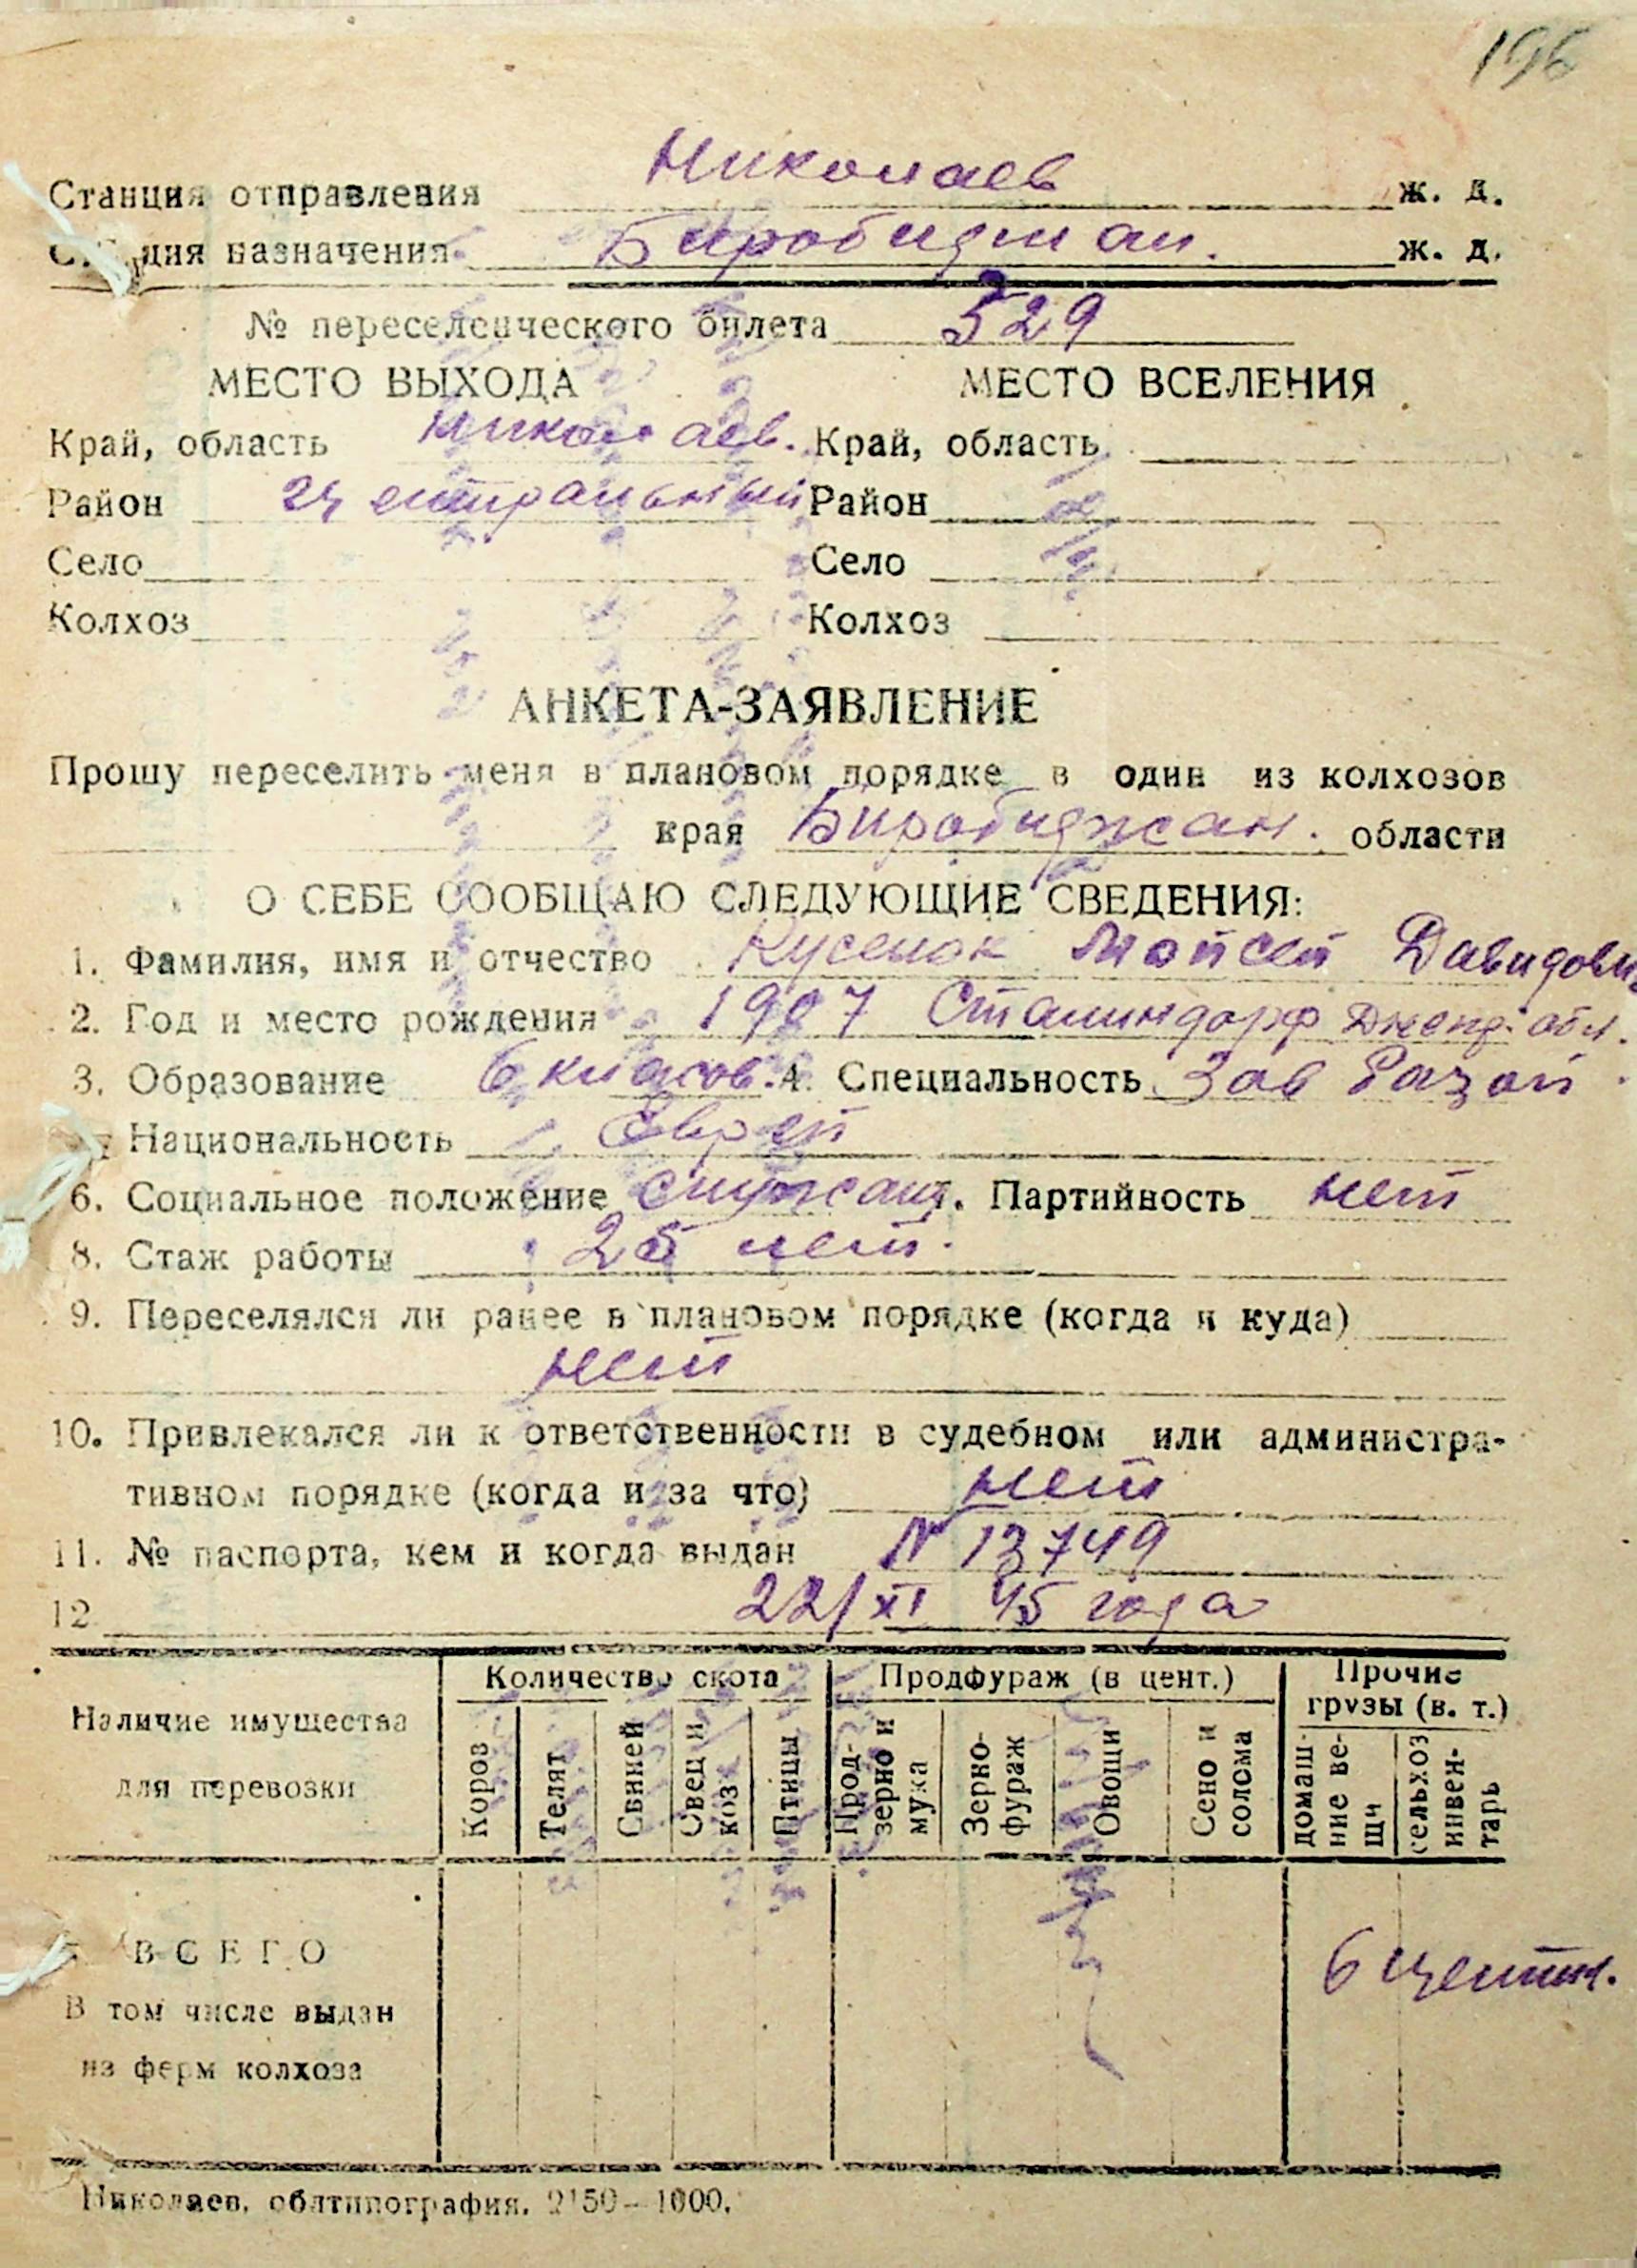 196
Станция отправления Николаев ж. д.
Станция назначения Биробиджан. ж. д.
№ переселенческого билета 529
МЕСТО ВЫХОДА МЕСТО ВСЕЛЕНИЯ
Край, область Николаев. Край, область
Район Центральный Район
Село Село
Колхоз Колхоз
АНКЕТА-ЗАЯВЛЕНИЕ
Прошу переселить меня в плановом порядке в один из колхозов
края Биробиджан. области
О СЕБЕ СООБЩАЮ СЛЕДУЮЩИЕ СВЕДЕНИЯ:
1. Фамилия, имя и отчество Мойсей Давидович
2. Год и место рождения 1907 Сталиндорф Днепр. обл.
3. Образование 6 класов. 4. Специальность Зав базой
Национальность Еврей
6. Социальное положение служащ. Партийность нет
8. Стаж работы 25 лет.
9. Переселялся ли ранее в плановом порядке (когда и куда)
нет
10. Привлекался ли к ответственности в судебном или администра-
тивном порядке (когда и за что) нет
11. № паспорта, кем и когда выдан N 13749
12 22/XI 45 года
Наличие имущества для перевозки
Количество скота Продфураж (в цент.) Прочие грузы (в. т.)
Коров Телят Свиней Овец и коз Птицы Прод-зерно и мука Зерно-фураж Овощи Сено и солома домаш-ние ве-щи сельхоз инвен-тарь
ВСЕГО 6 центн.
В том числе выдан
из ферм колхоза
Николаев, облтипография. 2150—1000.